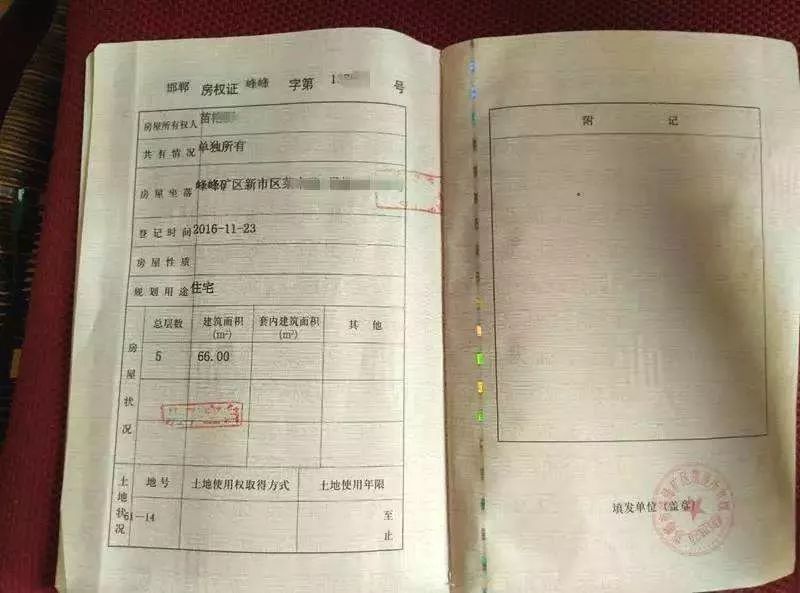 邯郸 房权证 峰峰 字第 1 号
房屋所有权人 苗
共有情况 单独所有
房屋坐落 峰峰矿区新市区
登记时间 2016-11-23
房屋性质
规划用途 住宅
房屋状况
总层数 建筑面积(m²) 套内建筑面积(m²) 其他
5 66.00
土地状况
地号 土地使用权取得方式 土地使用年限
61—14 至
止
附 记
填发单位(盖章)